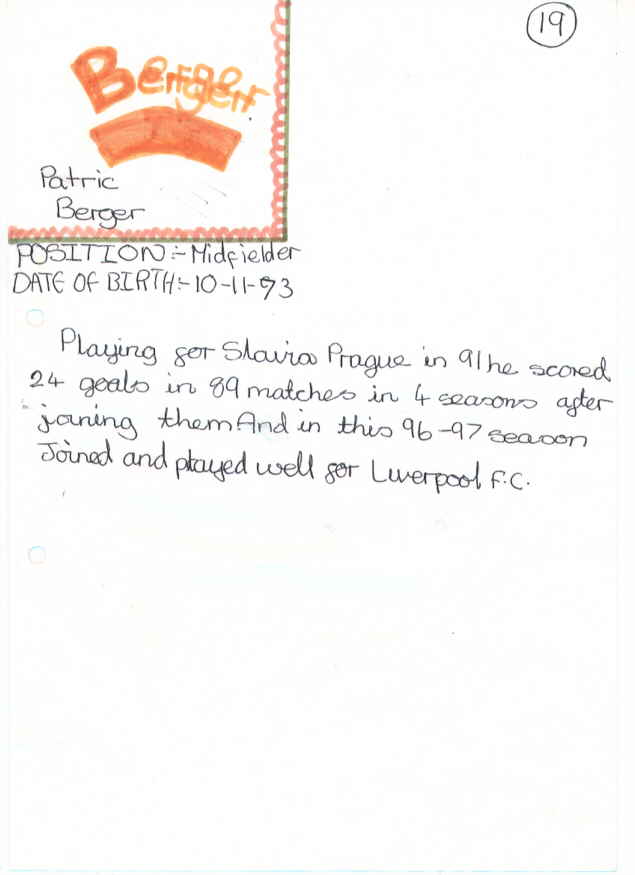 19
Berger
Patric
Berger
POSITION:- Midfielder
DATE OF BIRTH:- 10-11-93
Playing for Slavia Prague in 91 he scored
24 goals in 89 matches in 4 seasons after
joining them And in this 96-97 season
Joined and played well for Liverpool F.C.